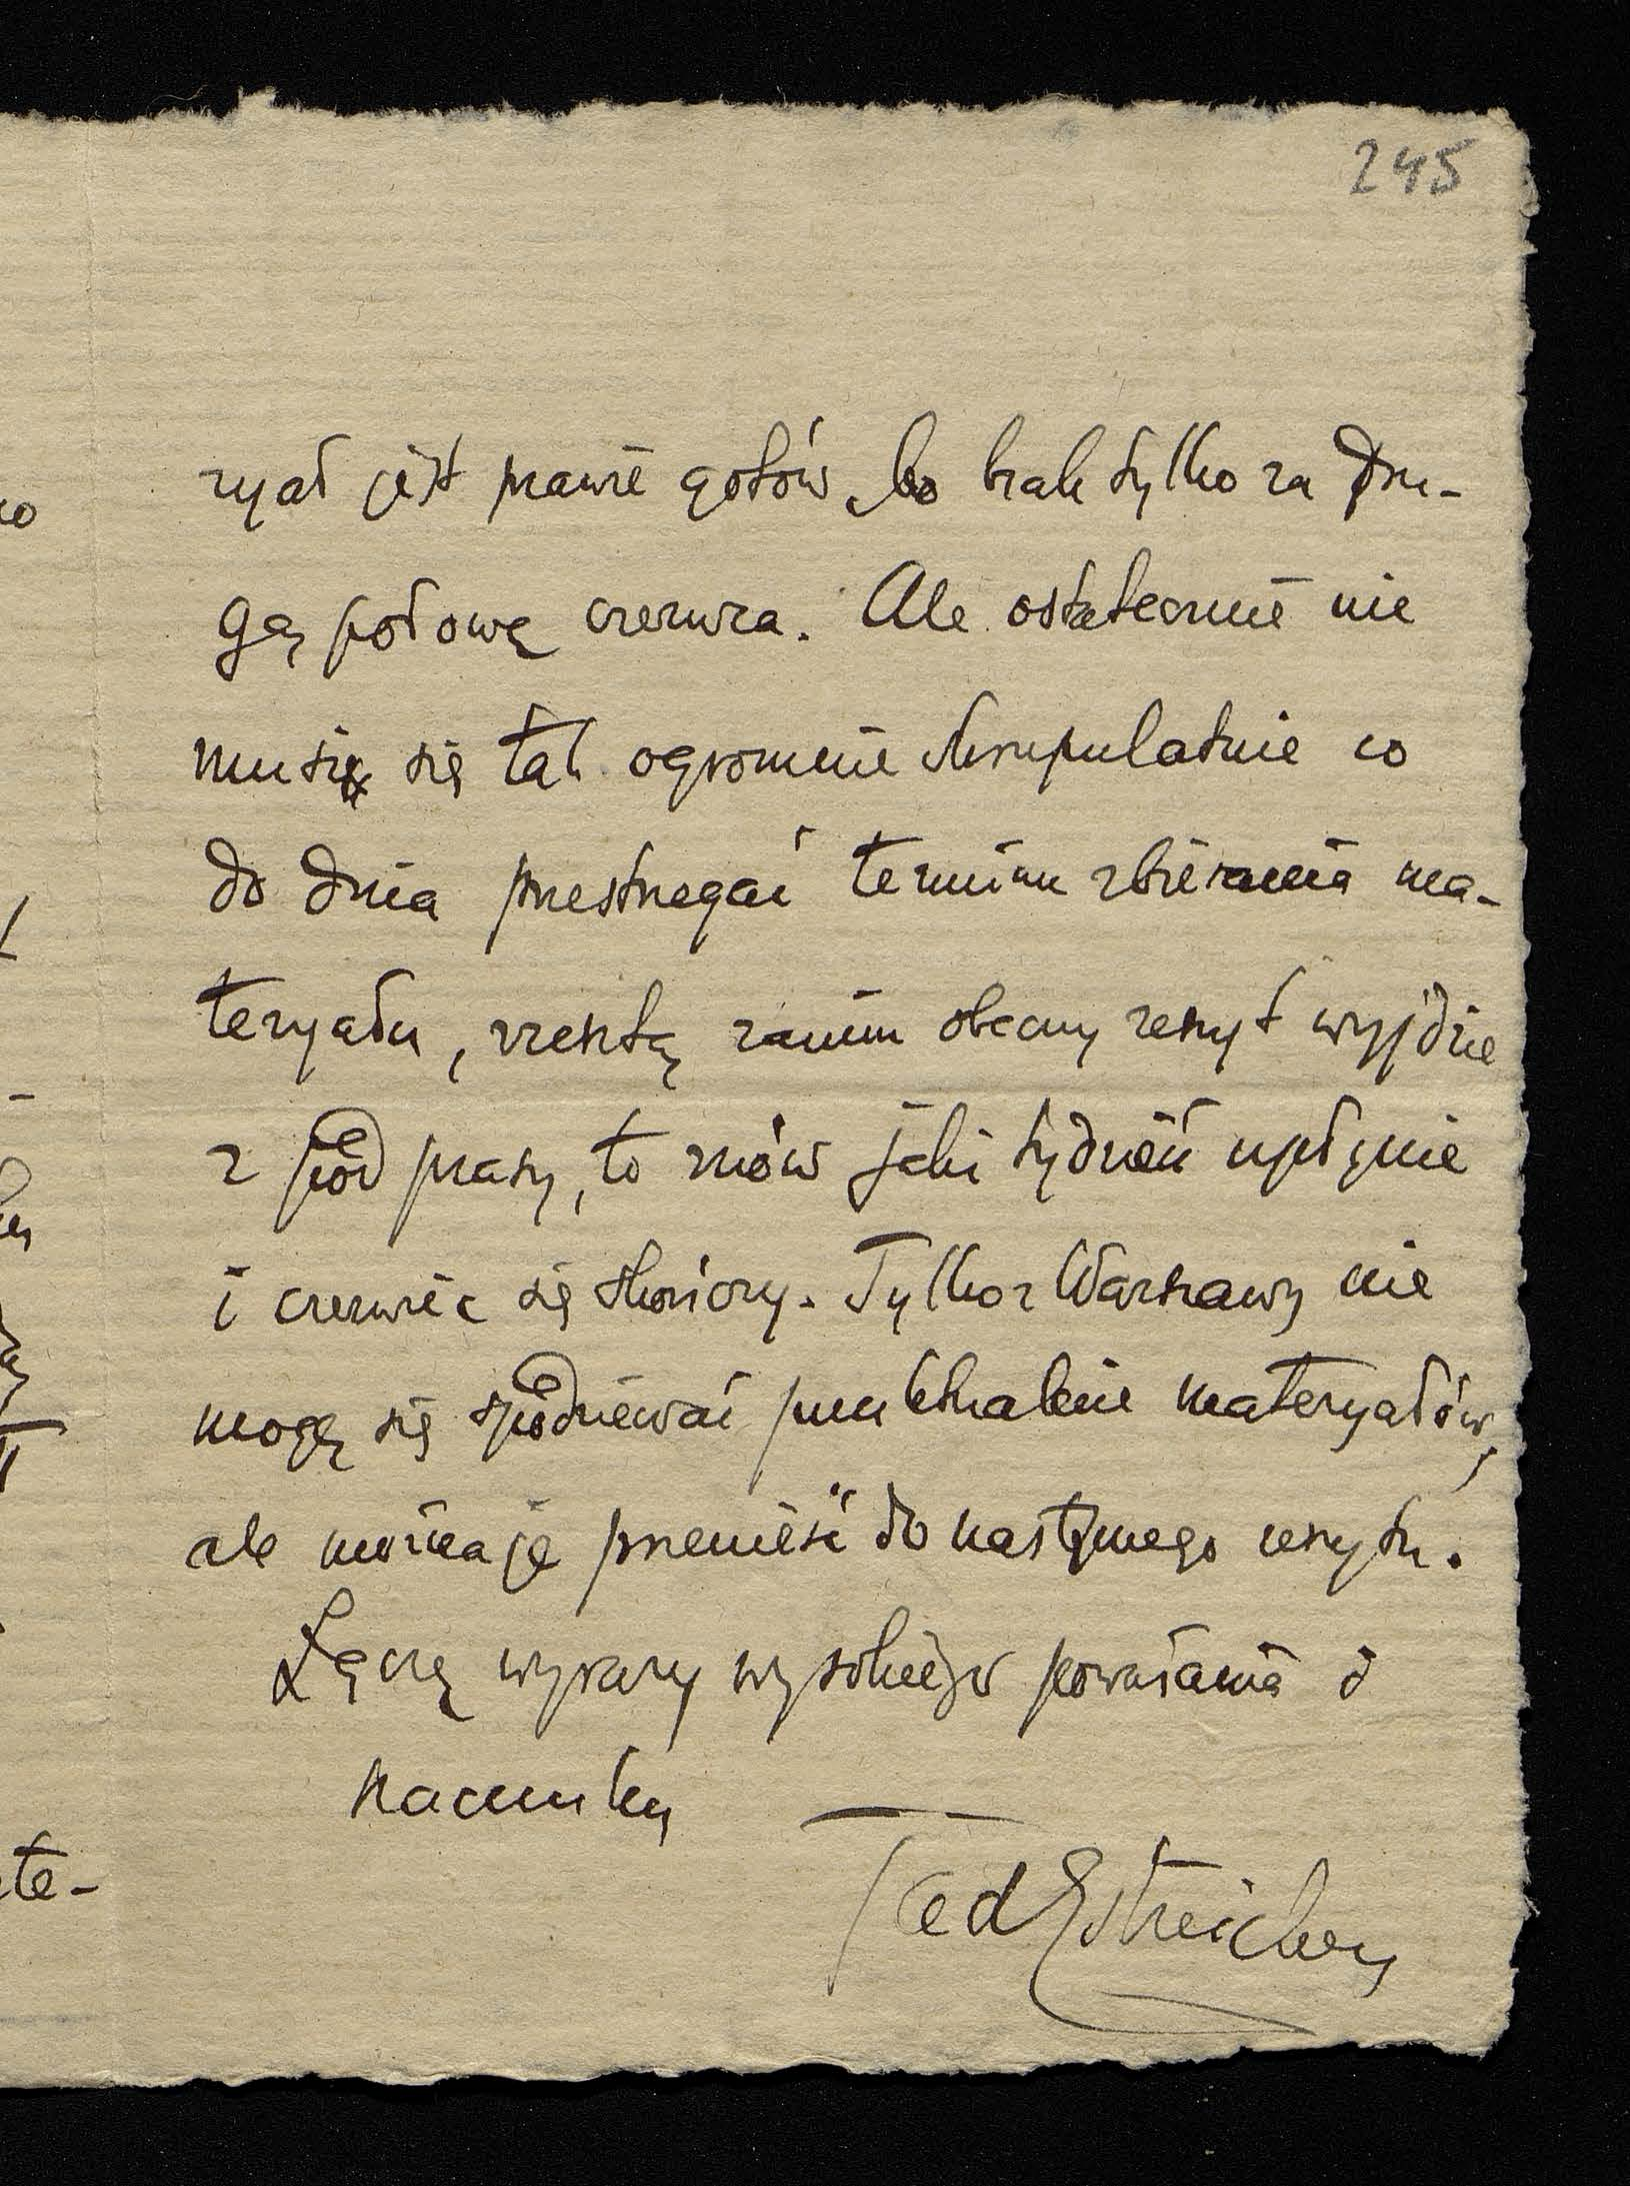 245
ryał jest prawie gotów, bo brak tylko za dru-
gą połowę czerwca. Ale ostatecznie nie
musi się tak ogromnie skrupulatnie co
do dnia przestrzegać terminu zbierania ma-
teryału, zresztą zanim obecny zeszyt wyjdzie
z pod prasy, to znów jaki tydzień upłynie
i czerwiec się skończy. Tylko z Warszawy nie
mogę się spodziewać punktualnie materyałów,
ale można je przenieść do następnego zeszytu.
Łączę wyrazy wysokiego poważania i
szacunku
Tad Estreicher
te-